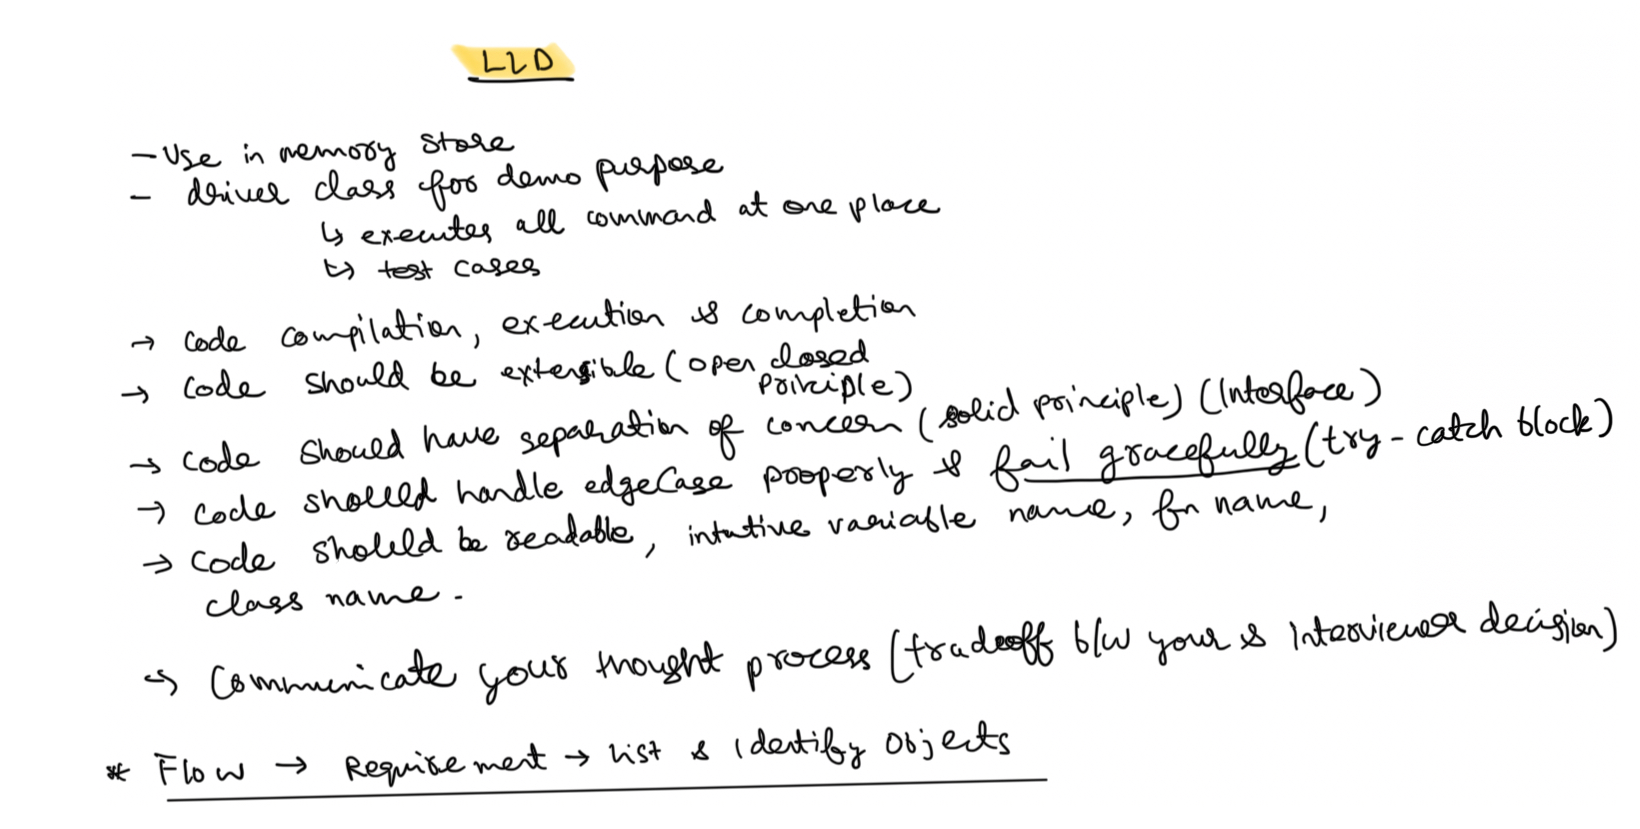 LLD
- Use in memory store
- driver class for demo purpose
↳ executes all command at one place
↳ test cases
→ code compilation, execution & completion
→ code should be extensible (open closed
principle)
→ code should have separation of concern (solid principle) (Interface)
→ code should handle edgeCase properly & fail gracefully (try-catch block)
→ code should be readable, intutive variable name, fn name,
class name.
↳ Communicate your thought process (tradeoff b/w your & Interviewer decision)
* Flow → Requirement → List & Identify Objects